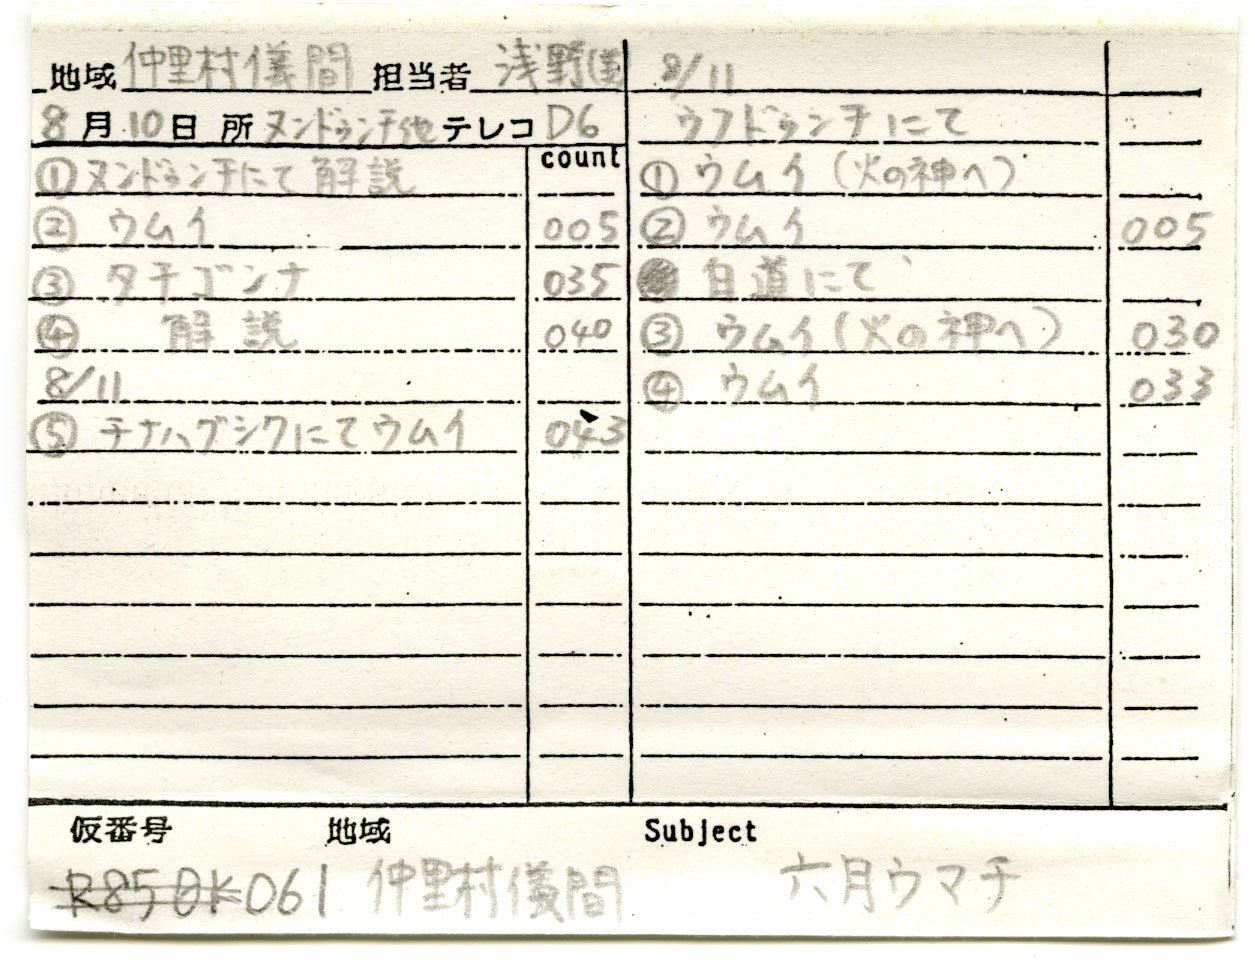 地域 仲里村儀間 担当者 浅野
8月10日 所 ヌンドゥンチ他 テレコ D6
count
①ヌンドゥンチにて解説
② ウムイ 005
③ タチゴンナ 035
④ 解説 040
8/11
⑤ チナハグシクにてウムイ 043
8/11
ウフドゥンチにて
① ウムイ(火の神へ)
② ウムイ 005
白道にて
③ ウムイ(火の神へ) 030
④ ウムイ 033
仮番号 地域 Subject
R85OK061 仲里村儀間 六月ウマチ